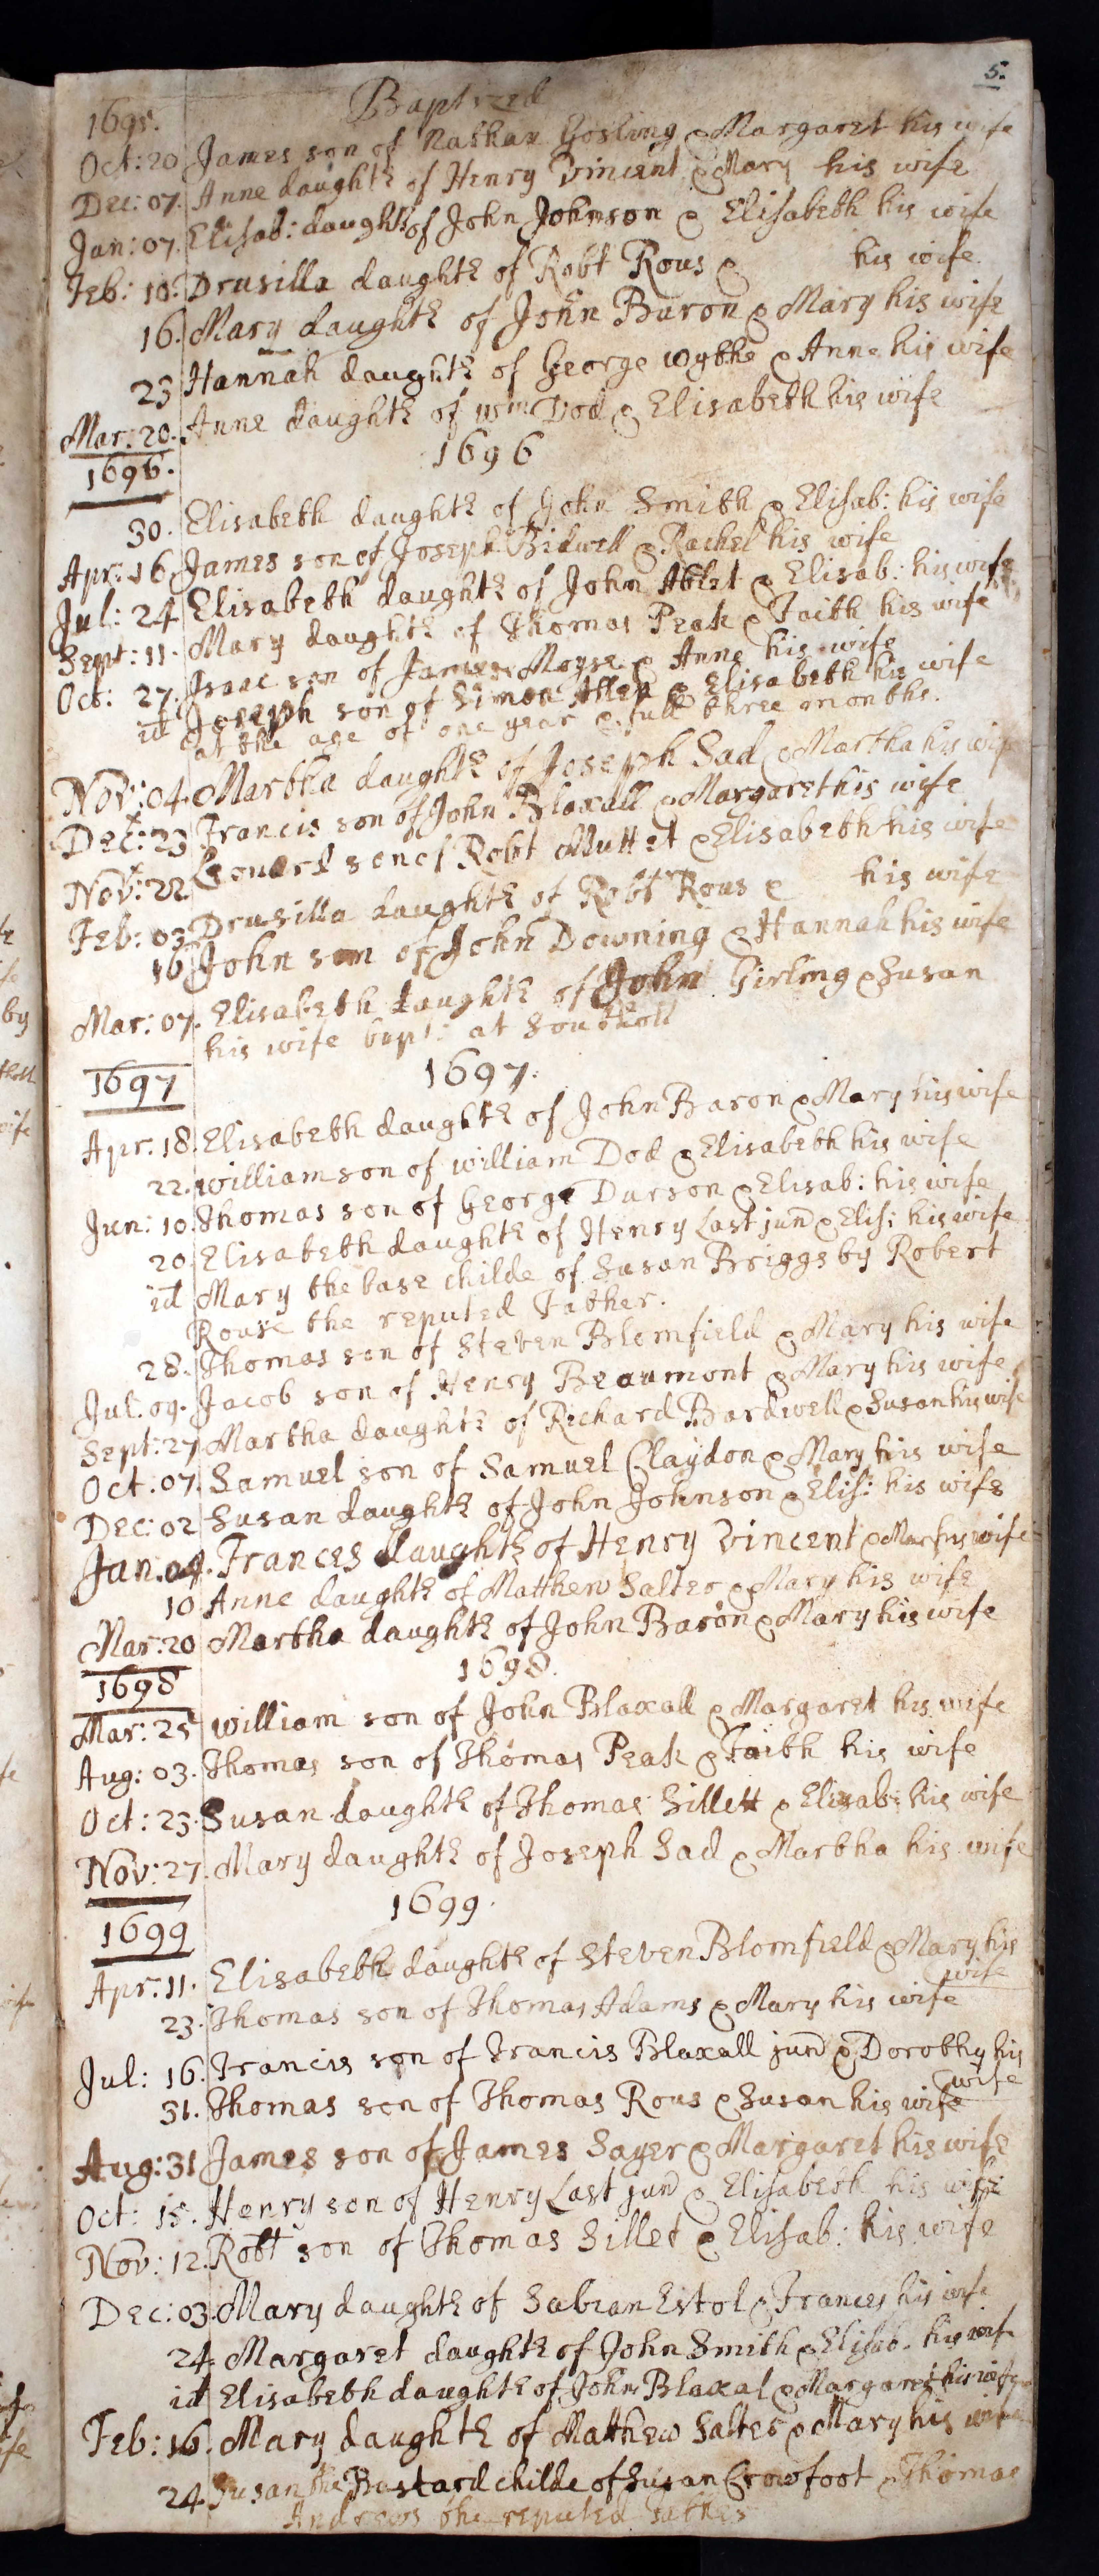 5.
1695. Baptized
Oct: 20 James son of Nathan Gosling & Margaret his wife
Dec: 07. Anne daughtr of Henry Vincent & Mary his wife
Jan: 07. Elisab: daughtr of John Johnson & Elisabeth his wife
Feb: 10. Drusilla daughtr of Robt Rous & his wife.
16. Mary daughtr of John Baron & Mary his wife
23 Hannah daughtr of George Wythe & Anne his wife
Mar: 20. Anne daughtr of Wm Dod & Elisabeth his wife
1696. 1696
30. Elisabeth daughtr of John Smith & Elisab: his wife
Apr: 16 James son of Joseph Bidwell & Rachel his wife
Jul: 24 Elisabeth daughtr of John Ablet & Elisab: his wife
Sept: 11. Mary daughtr of Thomas Peak & Faith his wife
Oct: 27. Isaac son of James Moyse & Anne his wife
id Joseph son of Simon Allen & Elisabeth his wife
at the age of one year & full three months.
Nov: 04 Martha daughtr of Joseph Sad & Martha his wife
Dec: 23 Francis son of John Blaxall & Margaret his wife
Nov: 22 Leonard son of Robt Muttet & Elisabeth his wife
Feb: 03 Drusilla daughtr of Robt Rous & his wife
16 John son of John Downing & Hannah his wife
Mar: 07. Elisabeth daughtr of John Girling & Susan
his wife bapt: at Southolt
1697 1697.
Apr. 18. Elisabeth daughtr of John Baron & Mary his wife
22. William son of William Dod & Elisabeth his wife
Jun: 10. Thomas son of George Durson & Elisab: his wife
20. Elisabeth daughtr of Henry Last junr & Elis: his wife
id Mary the base childe of Susan Briggs by Robert
Rouse the reputed Father.
28. Thomas son of Steven Blomfield & Mary his wife
Jul. 09. Jacob son of Henry Beaumont & Mary his wife
Sept: 27 Martha daughtr of Richard Bardwell & Susan his wife
Oct: 07. Samuel son of Samuel Claydon & Mary his wife
Dec: 02 Susan daughtr of John Johnson & Elis: his wife
Jan. 04. Frances daughtr of Henry Vincent & Mar his wife
10 Anne daughtr of Matthew Salter & Mary his wife
Mar: 20 Martha daughtr of John Baron & Mary his wife
1698 1698.
Mar: 25 William son of John Blaxall & Margaret his wife
Aug: 03. Thomas son of Thomas Peak & Faith his wife
Oct: 23. Susan daughtr of Thomas Sillett & Elisab: his wife
Nov: 27. Mary daughtr of Joseph Sad & Martha his wife
1699 1699.
Apr: 11. Elisabeth daughtr of Steven Blomfield & Mary his
wife
23. Thomas son of Thomas Adams & Mary his wife
Jul: 16. Francis son of Francis Blaxall junr & Dorothy his
wife
31. Thomas son of Thomas Rous & Susan his wife
Aug: 31 James son of James Sayer & Margaret his wife
Oct: 15. Henry son of Henry Last junr & Elisabeth his wife
Nov: 12. Robt son of Thomas Sillet & Elisab: his wife
Dec: 03. Mary daughtr of Sabian Estol & Frances his wife
24. Margaret daughtr of John Smith & Elisab. his wife
id Elisabeth daughtr of John Blaxal & Margaret his wife
Feb: 16. Mary daughtr of Matthew Salter & Mary his wife
24. Susan the Bastard childe of Susan Crowfoot & Thomas
Andrews the reputed father